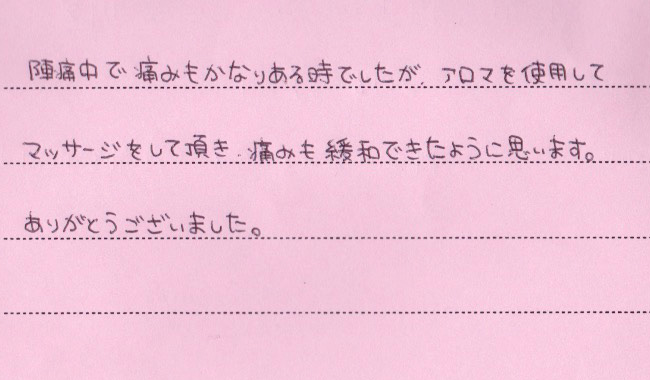 陣痛中で痛みもかなりある時でしたが、アロマを使用して
マッサージをして頂き、痛みも緩和できたように思います。
ありがとうございました。